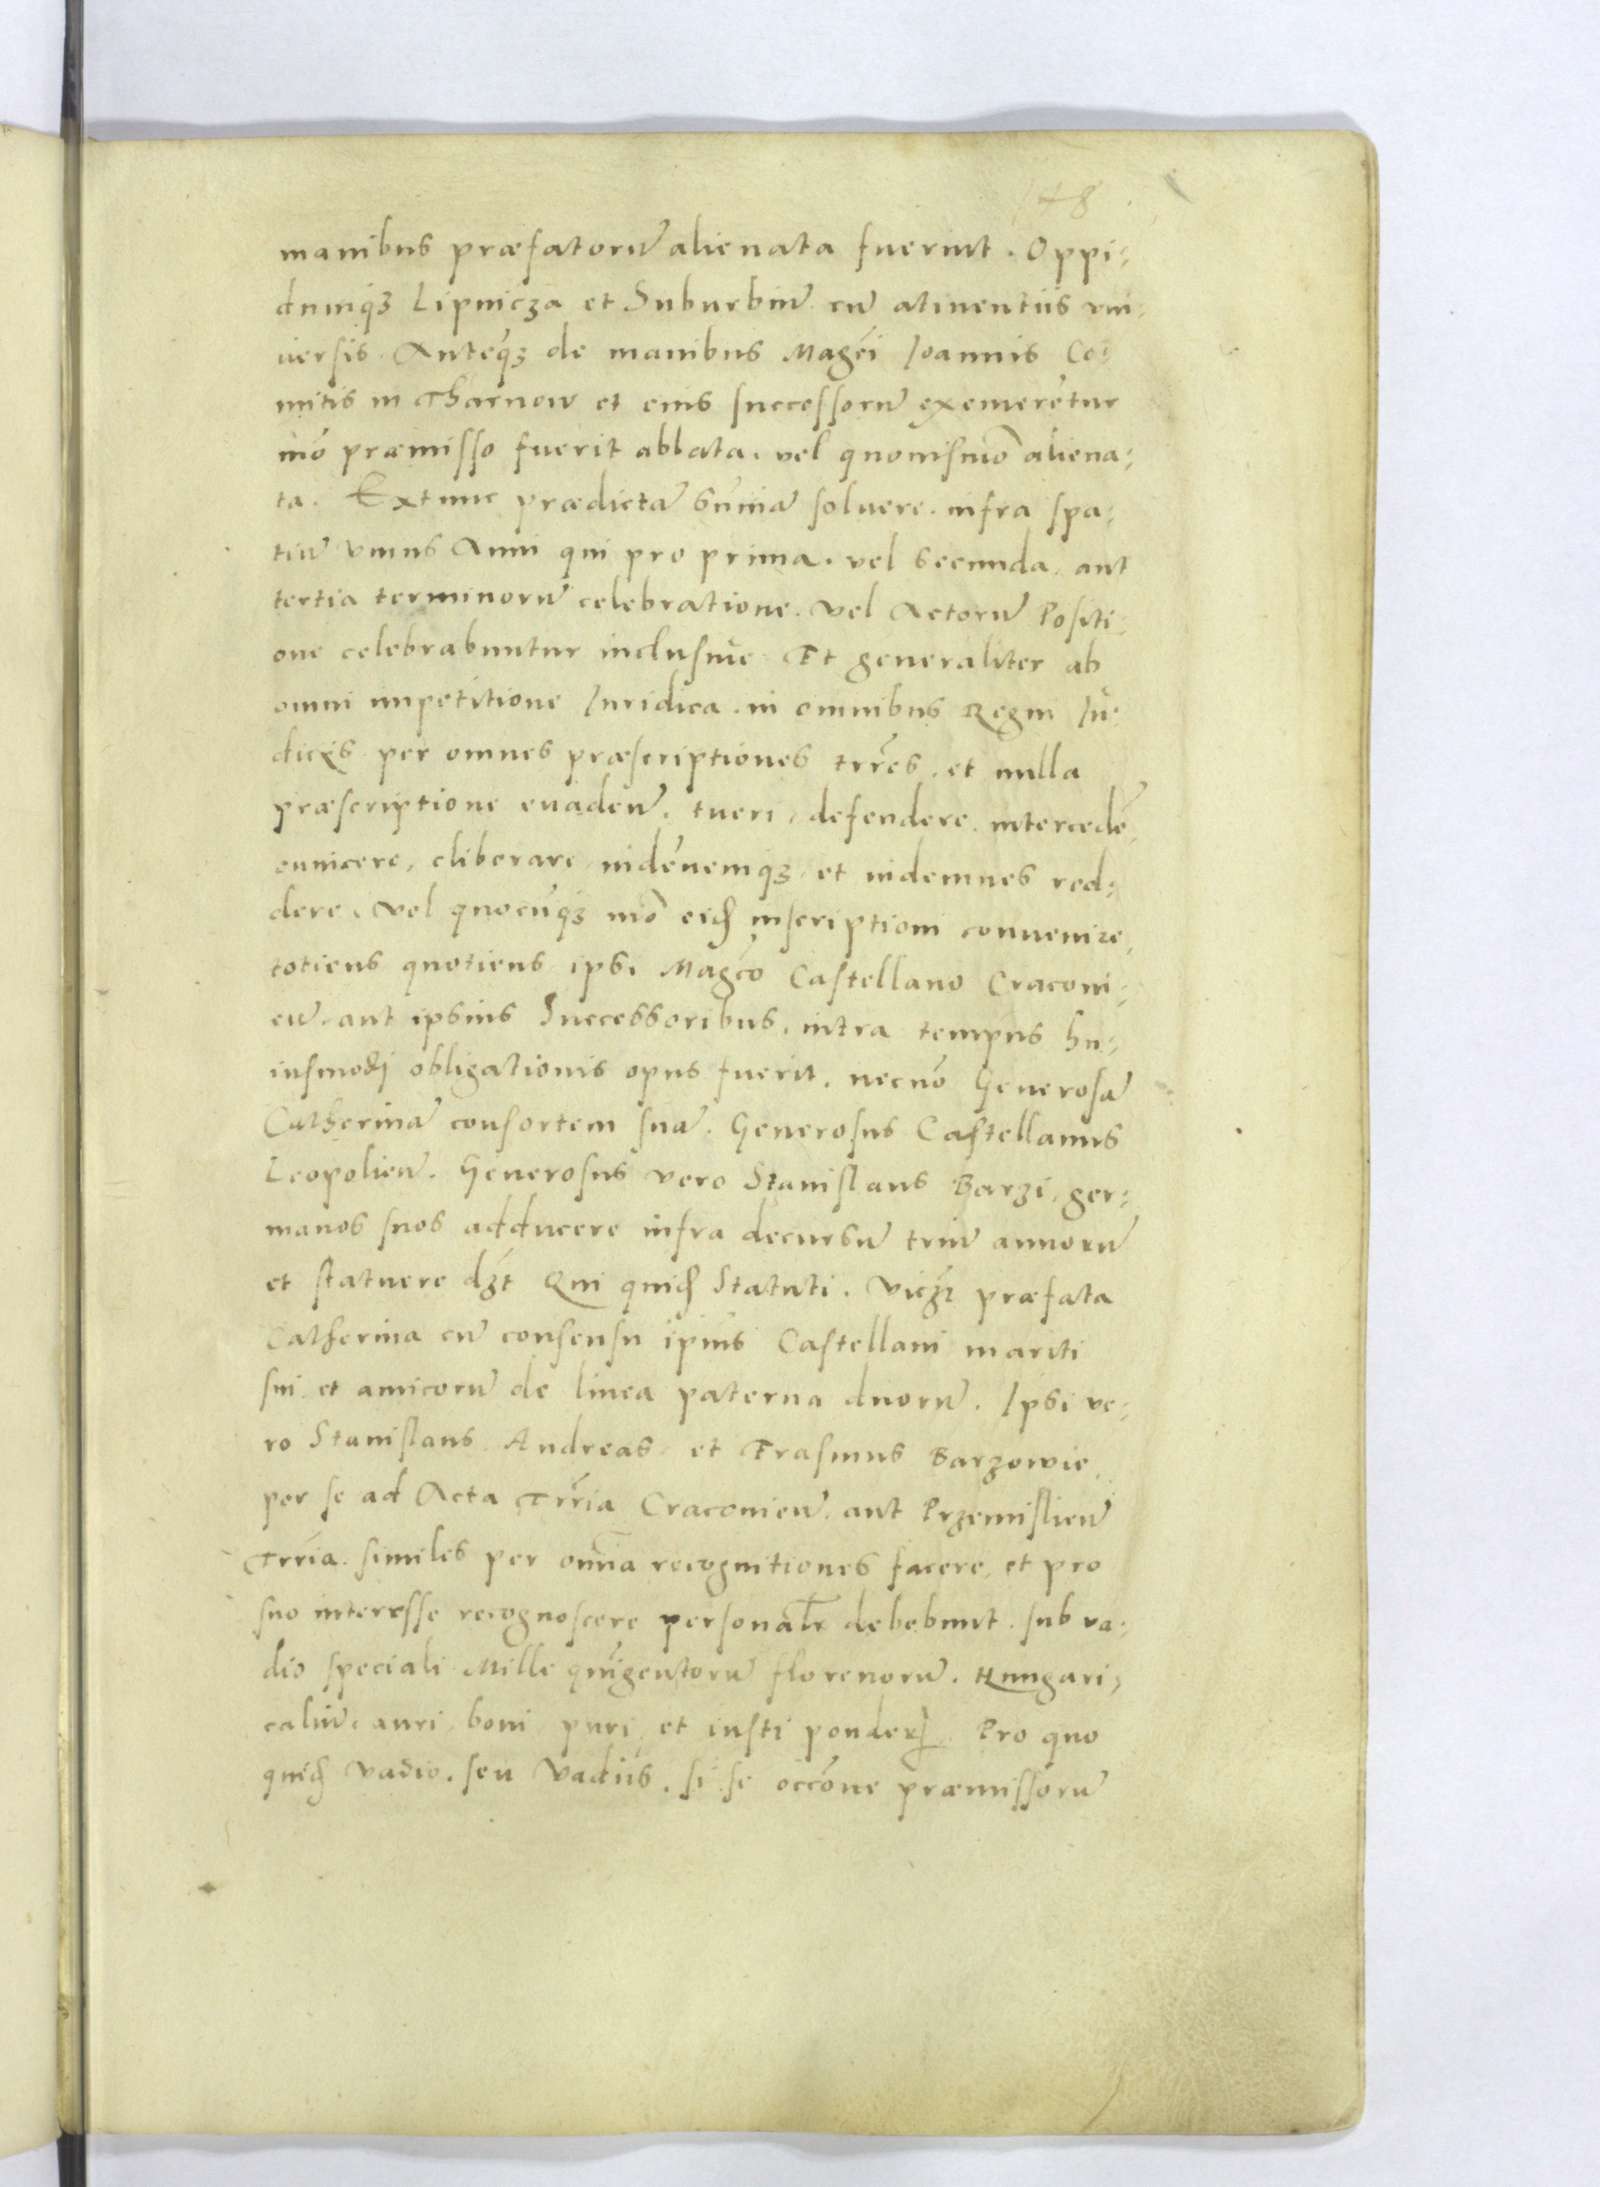 48
manibus præfatorũ alienata fuerint. Oppi-
dumq3 Lipnicza et Suburbiũ cũ atinentiis vni-
uersis. Anteq̃3 de manibus Mag̃ci Ioannis Co-
mitis in Tharnow et eius successorũ exemeretur
mõ præmisso fuerit ablata. vel quouismõ aliena-
ta. Extunc prædictã sum̃ã soluere. infra spa-
tiũ vnius Anni qui pro prima. vel secunda. aut
tertia terminorũ celebratione. vel Actorũ Positi-
one celebrabuntur inclusiue Et generaliter ab
omni impetitione Iuridica. in omnibus Regni Iu-
diciis per omnes præscriptiones trr̃es. et nulla
præscriptione euadeñ. tueri, defendere. intercedẽ,
euincere, eliberare, indẽnemq3, et indemnes red-
dere. vel quocũq3 mõ eid inscriptioni conuenire,
totiens quotiens ipsi Mag̃co Castellano Craconi-
eñ. aut ipsius Successoribus. intra tempus hu-
iusmodi obligationis opus fuerit. necnõ Generosã
Catherinã consortem suã. Generosus Castellanus
Leopolieñ. Generosus vero Stanislaus Barzi, ger-
manos suos adducere infra decursũ triũ annorũ
et statuere d3̃t Qui quid Statuti. Vicz̃ præfata
Catherina cũ consensu ipius Castellani mariti
sui et amicorũ de linea paterna duorũ. Ipsi ve-
ro Stanislaus Andreas et Erasmus Barzowie,
per se ad Acta Trr̃ia Cracouieñ. aut Przemislieñ
Trr̃ia. similes per om̃ia recognitiones facere, et pro
suo interesse recognoscere personalr̃ debebunt. sub va-
dio speciali Mille quĩgentorũ florenorũ. Hungari-
caliũ. auri, boni, puri, et iusti ponder Pro quo
quid vadio. seu vadiis. si se occõne præmissorũ